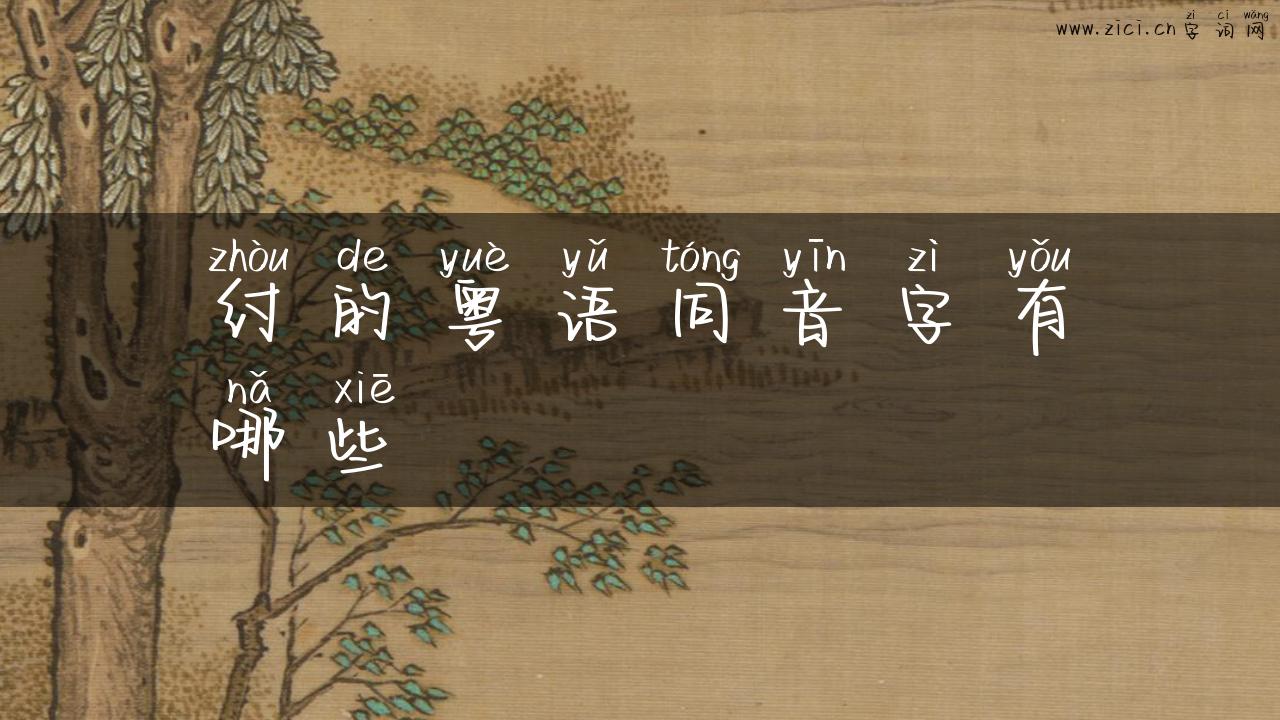 zì cí wǎng
www.zici.cn 字词网
zhòu de yuè yǔ tóng yīn zì yǒu
纣的粤语同音字有
nǎ xiē
哪些